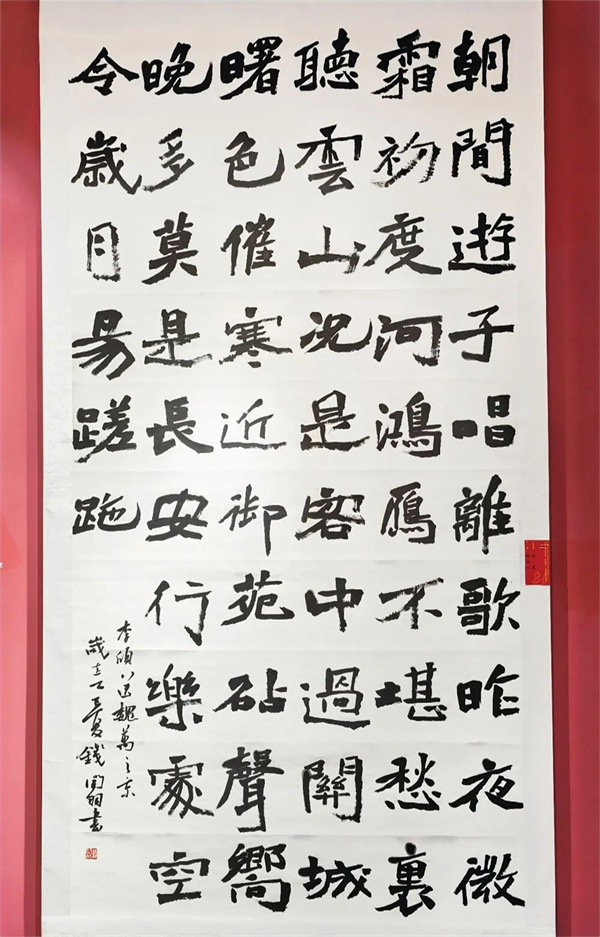 朝間遊子唱離歌昨夜微
霜初度河鴻鴈不堪愁裏
聽雲山況是客中過關城
曙色催寒近御苑砧聲嚮
晚多莫是長安行樂處空
令歲月易蹉跎
李頎送魏萬之京
歲在丁錢書